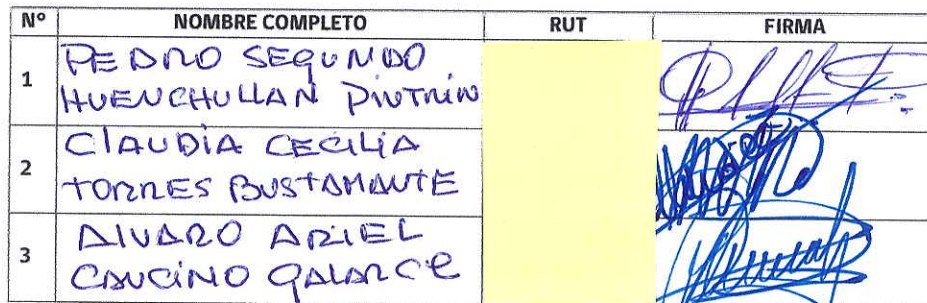 N° NOMBRE COMPLETO RUT FIRMA
1 PEDRO SEGUNDO
HUENCHULLAN
2 CLAUDIA CECILIA
TORRES BUSTAMANTE
3 ALVARO ARIEL
CAUCINO GALARCE